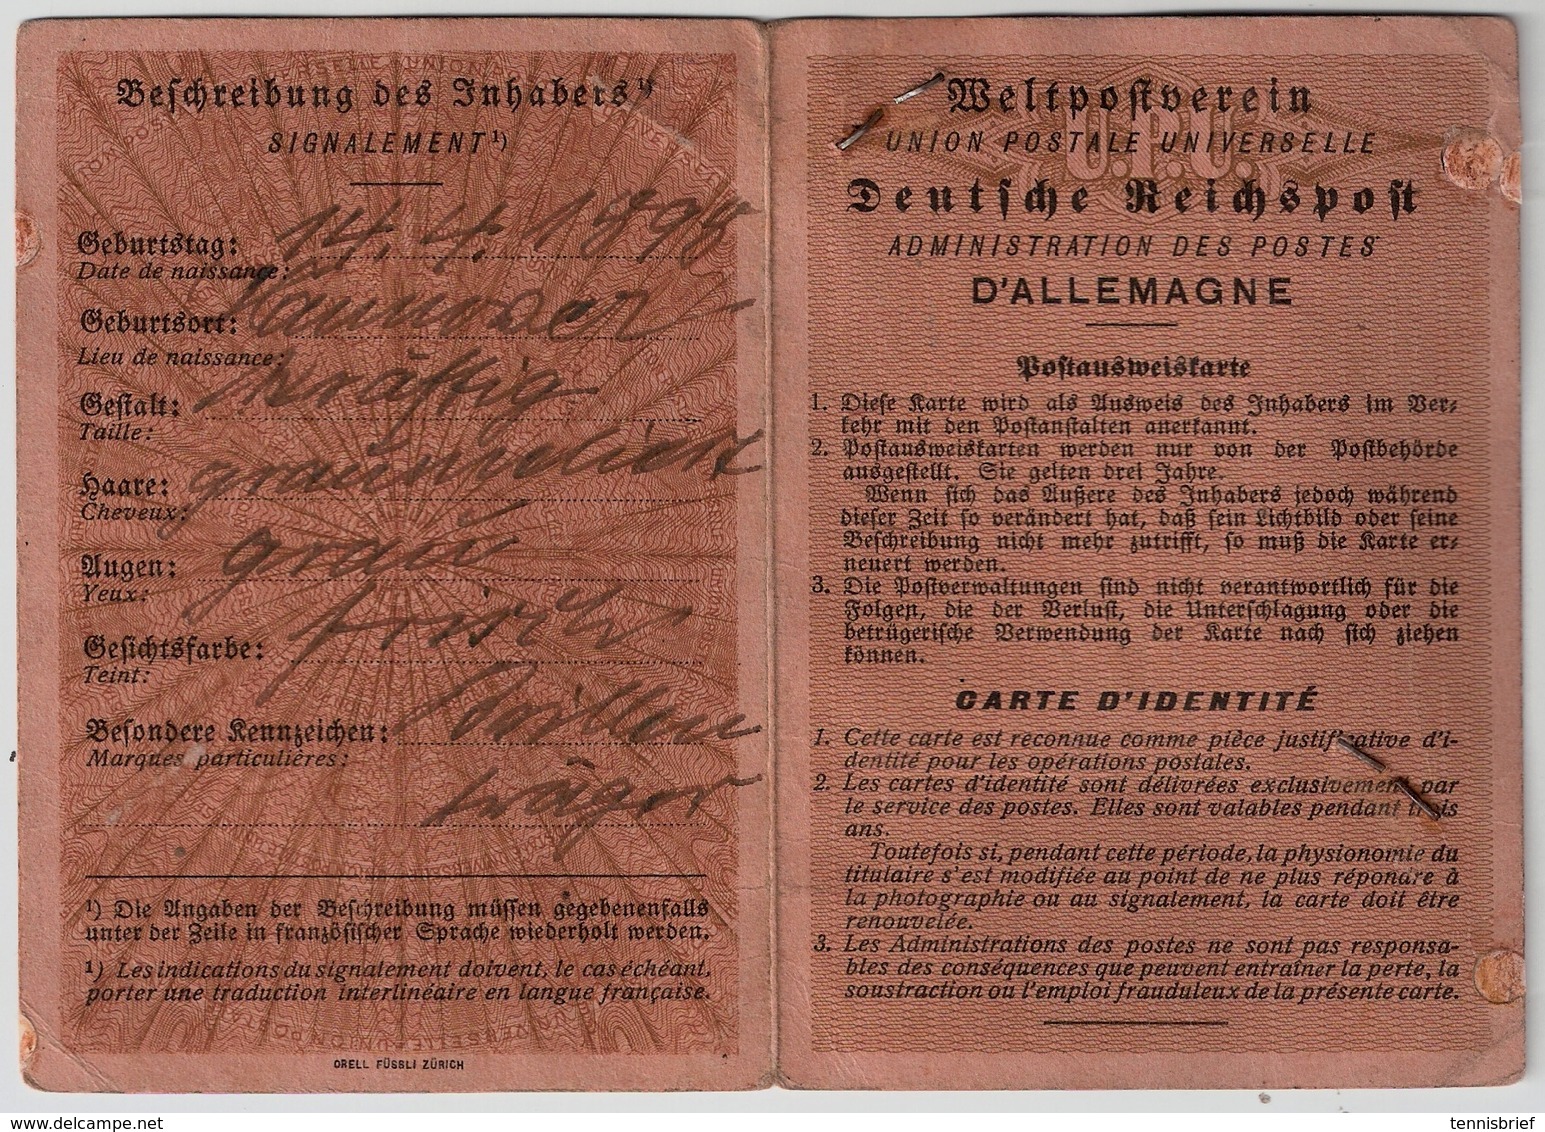 Beschreibung des Inhabers¹)
SIGNALEMENT¹)
Geburtstag: 14. 4. 1898
Date de naissance:
Geburtsort: Hannover
Lieu de naissance:
Gestalt: kräftig
Taille:
Haare: graumeliert
Cheveux:
Augen: grau
Yeux:
Gesichtsfarbe: frisch
Teint:
Besondere Kennzeichen: Brillen
Marques particulières:
träger
¹) Die Angaben der Beschreibung müssen gegebenenfalls
unter der Zeile in französischer Sprache wiederholt werden.
¹) Les indications du signalement doivent, le cas échéant,
porter une traduction interlinéaire en langue française.
ORELL FÜSSLI ZÜRICH
Weltpostverein
UNION POSTALE UNIVERSELLE
U.P.U.
Deutsche Reichspost
ADMINISTRATION DES POSTES
D'ALLEMAGNE
Postausweiskarte
1. Diese Karte wird als Ausweis des Inhabers im Ver-
kehr mit den Postanstalten anerkannt.
2. Postausweiskarten werden nur von der Postbehörde
ausgestellt. Sie gelten drei Jahre.
Wenn sich das Äußere des Inhabers jedoch während
dieser Zeit so verändert hat, daß sein Lichtbild oder seine
Beschreibung nicht mehr zutrifft, so muß die Karte er-
neuert werden.
3. Die Postverwaltungen sind nicht verantwortlich für die
Folgen, die der Verlust, die Unterschlagung oder die
betrügerische Verwendung der Karte nach sich ziehen
können.
CARTE D'IDENTITÉ
1. Cette carte est reconnue comme pièce justificative d'i-
dentité pour les opérations postales.
2. Les cartes d'identité sont délivrées exclusivement par
le service des postes. Elles sont valables pendant trois
ans.
Toutefois si, pendant cette période, la physionomie du
titulaire s'est modifiée au point de ne plus répondre à
la photographie ou au signalement, la carte doit être
renouvelée.
3. Les Administrations des postes ne sont pas responsa-
bles des conséquences que peuvent entraîner la perte, la
soustraction ou l'emploi frauduleux de la présente carte.
tennisbrief